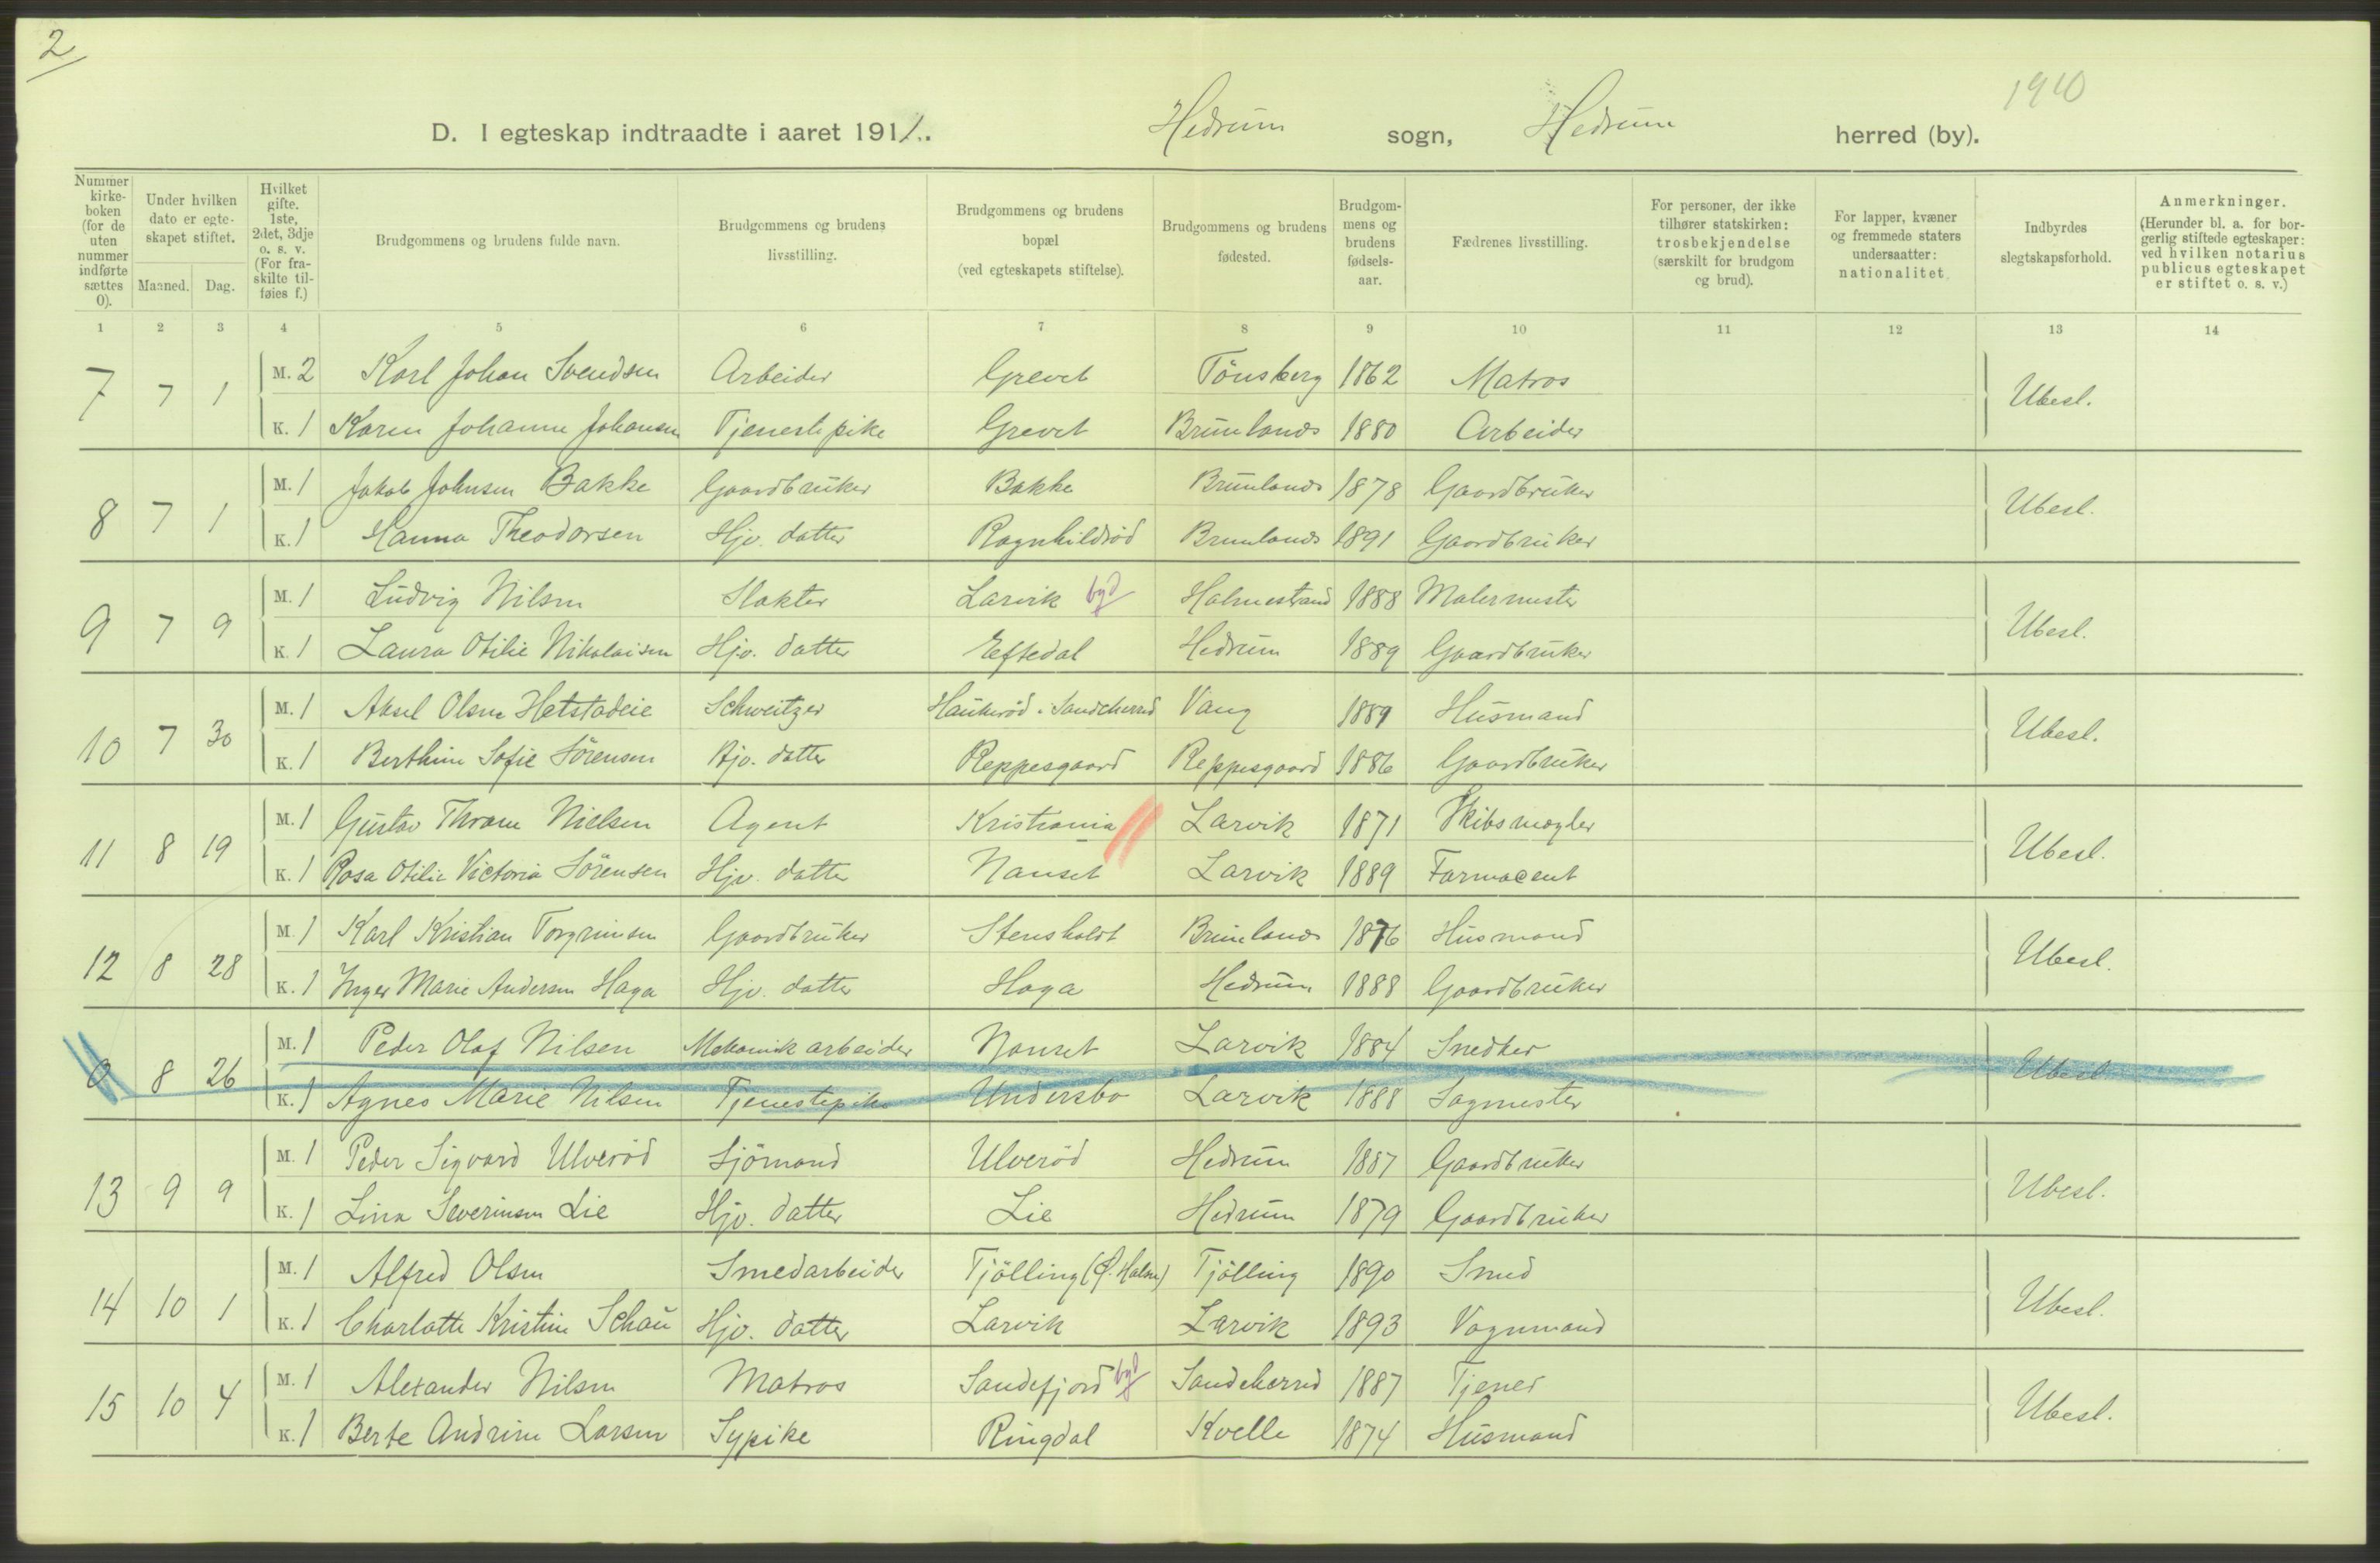 2
1910
D. I egteskap indtraadte i aaret 1911. Hedrum sogn, Hedrum herred (by).
Nummer kirke-boken (for de uten nummer indførte sættes 0).
Under hvilken dato er egte-skapet stiftet.
Maaned. Dag.
Hvilket gifte. 1ste, 2det, 3dje o. s. v. (For fra-skilte til-føies f.)
Brudgommens og brudens fulde navn.
Brudgommens og brudens livsstilling.
Brudgommens og brudens bopæl (ved egteskapets stiftelse).
Brudgommens og brudens fødested.
Brudgom-mens og brudens fødsels-aar.
Fædrenes livsstilling.
For personer, der ikke tilhører statskirken: trosbekjendelse (særskilt for brudgom og brud).
For lapper, kvæner og fremmede staters undersaatter: nationalitet.
Indbyrdes slegtskapsforhold.
Anmerkninger. (Herunder bl. a. for bor-gerlig stiftede egteskaper: ved hvilken notarius publicus egteskapet er stiftet o. s. v.)
1 2 3 4 5 6 7 8 9 10 11 12 13 14
7 7 1 M. 2 Karl Johan Svendsen Arbeider Grevet Tönsberg 1862 Matros Ubesl.
K. 1 Karen Johanne Johansen Tjenestepike Grevet Brunlanes 1880 Arbeider
8 7 1 M. 1 Jakob Johnsen Bakke Gaardbruker Bakke Brunlanes 1878 Gaardbruker Ubesl.
K. 1 Hanna Theodorsen Hjv. datter Ragnhildrød Brunlanes 1891 Gaardbruker
9 7 9 M. 1 Ludvig Nilsen Slakter Larvik byd Holmestrand 1888 Malermester Ubesl.
K. 1 Laura Otilie Nikolaisen Hjv. datter Eftedal Hedrum 1889 Gaardbruker
10 7 30 M. 1 Aksel Olsen Hetstadeie Schweitzer Haukerød i Sandeherred Vang 1889 Husmand Ubesl.
K. 1 Berthine Sofie Sörensen Hjv. datter Reppesgaard Reppesgaard 1886 Gaardbruker
11 8 19 M. 1 Gustav Thrane Nielsen Agent Kristiania Larvik 1871 Skibsmægler Ubesl.
K. 1 Rosa Otilie Victoria Sörensen Hjv. datter Nanset Larvik 1889 Farmaceut
12 8 28 M. 1 Karl Kristian Torgrimsen Gaardbruker Stensholdt Brunlanes 1876 Husmand Ubesl.
K. 1 Inger Marie Andersen Haga Hjv. datter Haga Hedrum 1888 Gaardbruker
0 8 26 M. 1 Peder Olaf Nilsen Mekanisk arbeider Nanset Larvik 1884 Snedker Ubesl.
K. 1 Agnes Marie Nilsen Tjenestepike Undersbo Larvik 1888 Sagmester
13 9 9 M. 1 Peder Sigvard Ulveröd Sjömand Ulveröd Hedrum 1887 Gaardbruker Ubesl.
K. 1 Lina Severinsen Lie Hjv. datter Lie Hedrum 1879 Gaardbruker
14 10 1 M. 1 Alfred Olsen Smedarbeider Tjölling (Ö. Halsen) Tjölling 1890 Smed Ubesl.
K. 1 Charlotte Kristine Schau Hjv. datter Larvik Larvik 1893 Vognmand
15 10 4 M. 1 Alexander Nilsen Matros Sandefjord byd Sandeherred 1887 Tjener Ubesl.
K. 1 Berte Andrine Larsen Sypike Ringdal Kvelle 1874 Husmand